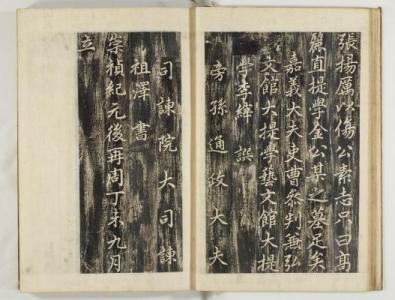 張揚厲以傷公素志只曰高
麗直提學金公某之墓足矣
嘉義大夫吏曹參判兼弘
文館大提學藝文館大提
學李縡譔
旁孫通政大夫
司諫院大司諫
祖澤書
崇禎紀元後再周丁未九月
立